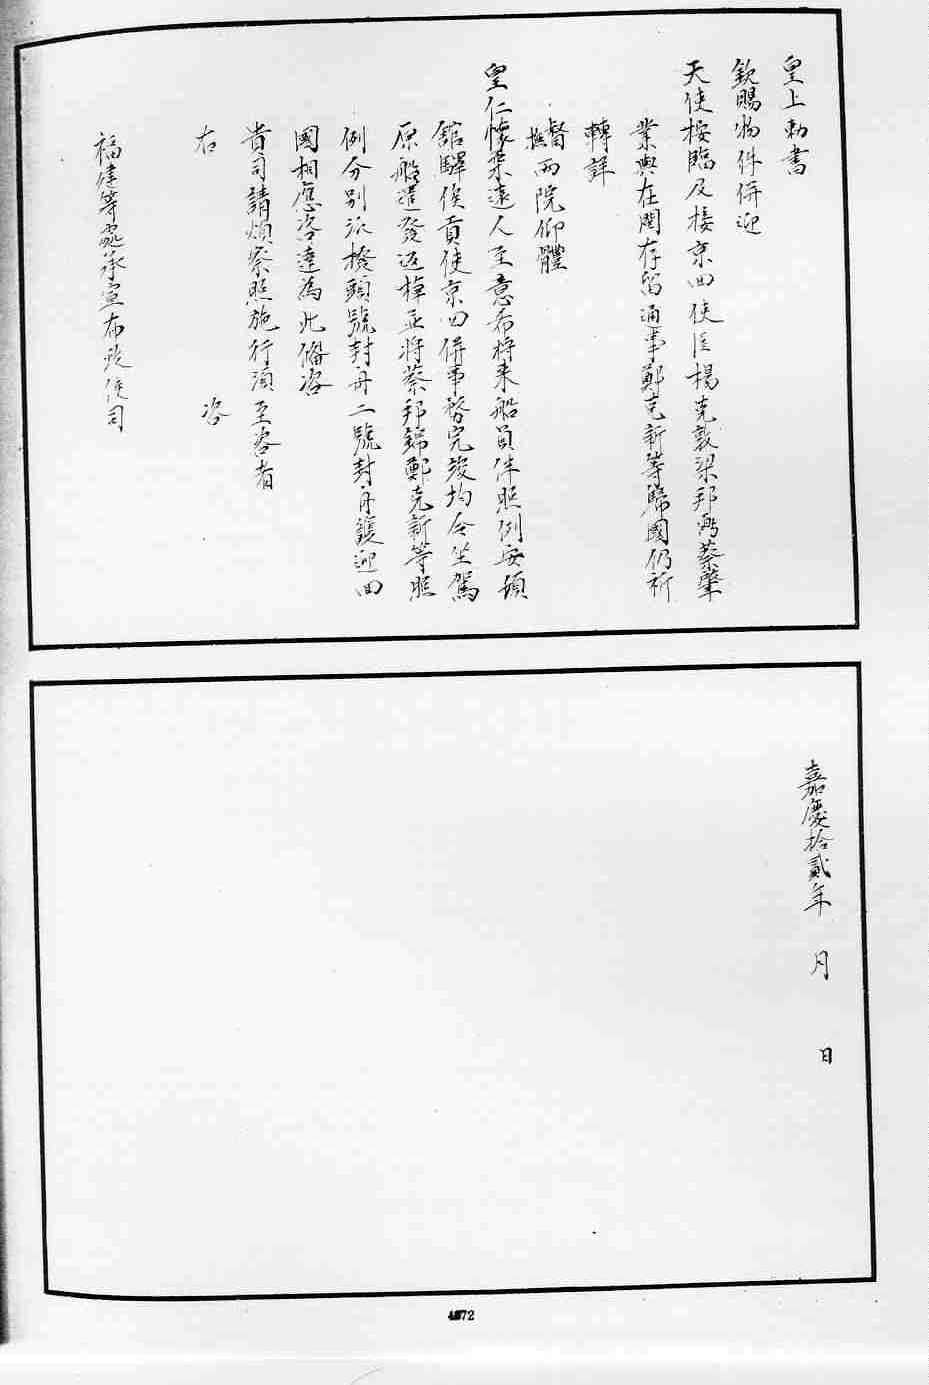 皇上勅書
欽賜物件併迎
天使按臨及接京回使臣楊克敦梁邦弼蔡肇
業與在閩存留通事鄭克新等歸國仍祈
轉詳
督撫兩院仰體
皇仁懷柔遠人至意希將来船員伴照例安頓
舘驛俟貢使京回併事務完竣均令坐駕
原船遣發返棹並將蔡邦錦鄭克新等照
例分別派撥頭號封舟二號封舟護迎回
國相應咨達為此偹咨
貴司請煩察照施行湏至咨者
右 咨
福建等處承宣布政使司
嘉慶拾貳年 月 日